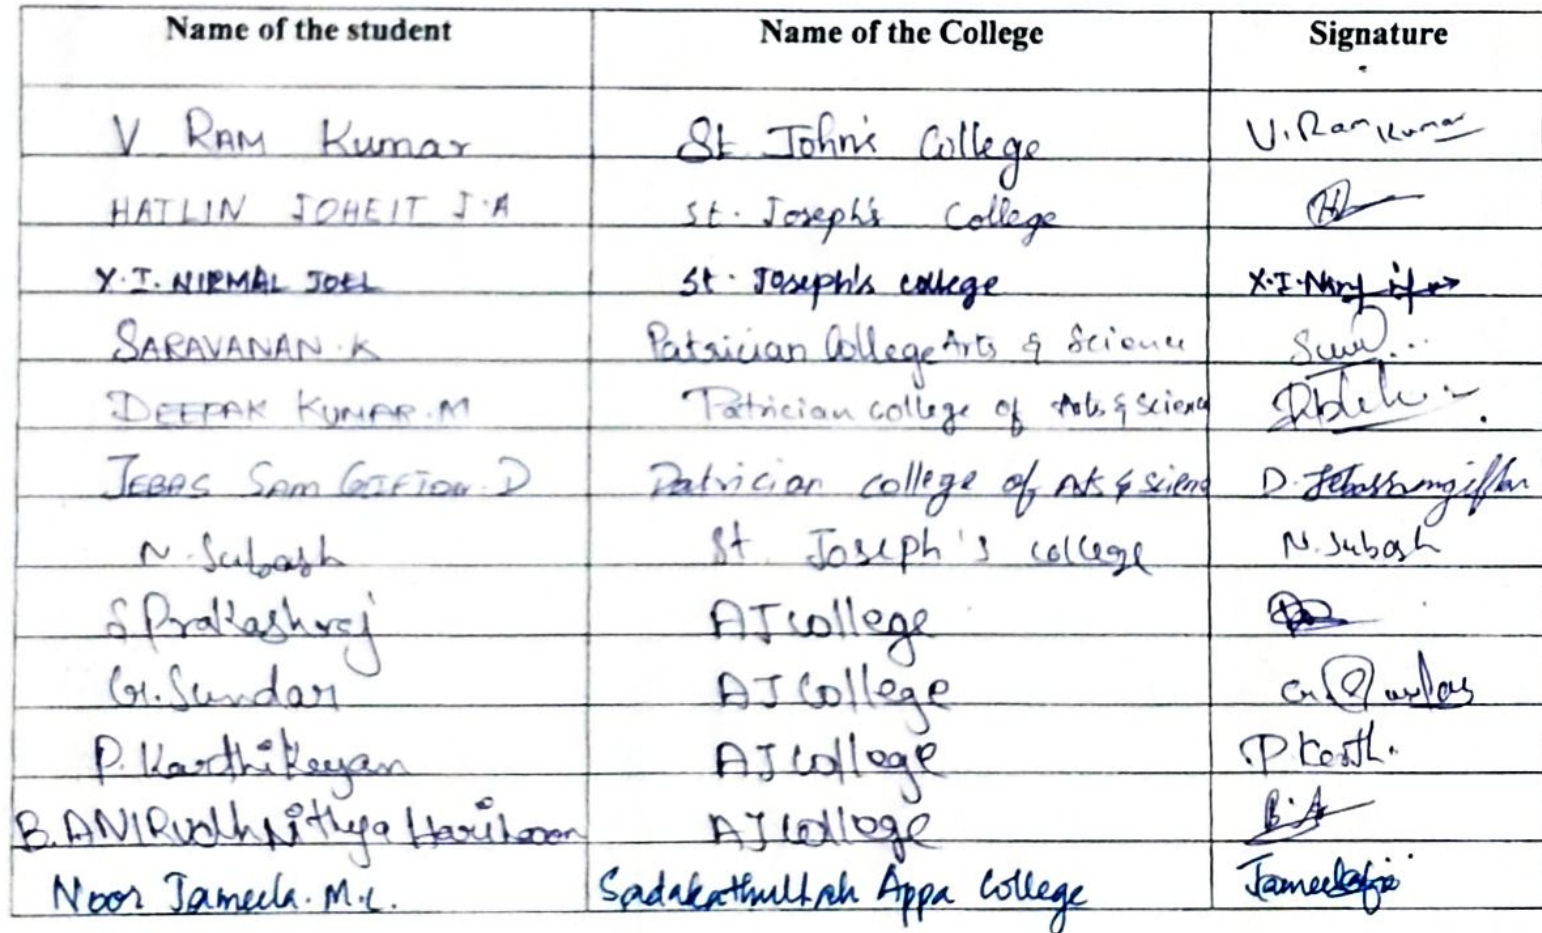 Name of the student Name of the College Signature
V RAM Kumar St John's College V. Ram Kumar
HATLIN JOHEIT J.A St. Joseph's College
Y.I. NIRMAL JOEL St. Joseph's college X.I.
SARAVANAN.K Patrician College Arts & Science
DEEPAK KUMAR.M Patrician college of Arts & Science
JEBAS SAM GIFTON D Patrician college of Arts & Scienc D. Jebassamgifton
N. Subash St. Joseph's college N. Subash
S Prakashraj AJ College
G. Sundar AJ College
P. Karthikeyan AJ College P. Karth.
B. ANIRudh Nithya Hariharan AJ College
Noor Jameela. M.L. Sadakathullah Appa College